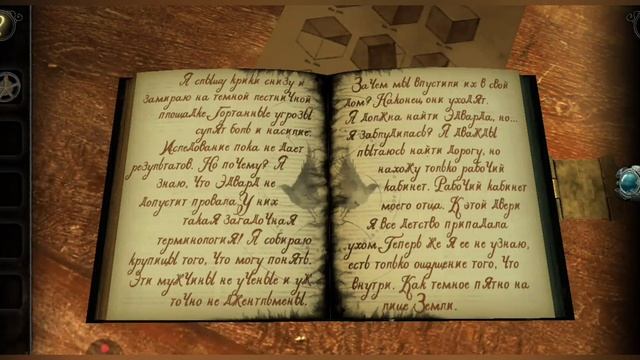 Я слышу крики снизу и
замираю на темной лестничной
площадке. Гортанные угрозы
сулят боль и насилие.
Исследование пока не дает
результатов. Но почему? Я
знаю, что Эдвард не
допустит провала. У них
такая загадочная
терминология! Я собираю
крупицы того, что могу понять.
Эти мужчины не ученые и уж
точно не джентльмены.
Зачем мы впустили их в свой
дом? Наконец, они уходят.
Я должна найти Эдварда, но...
Я заблудилась? Я дважды
пытаюсь найти дорогу, но
нахожу только рабочий
кабинет. Рабочий кабинет
моего отца. К этой двери
я все детство припадала
ухом. Теперь же я ее не узнаю,
есть только ощущение того, что
внутри. Как темное пятно на
лице Земли.